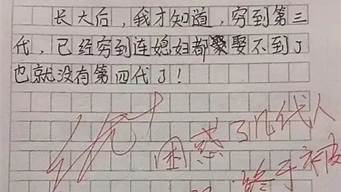 长大后，我才知道，穷到第三
代，已经穷到连媳妇都娶不到了
也就没有第四代了！
优+
困惑了几代人
终于被